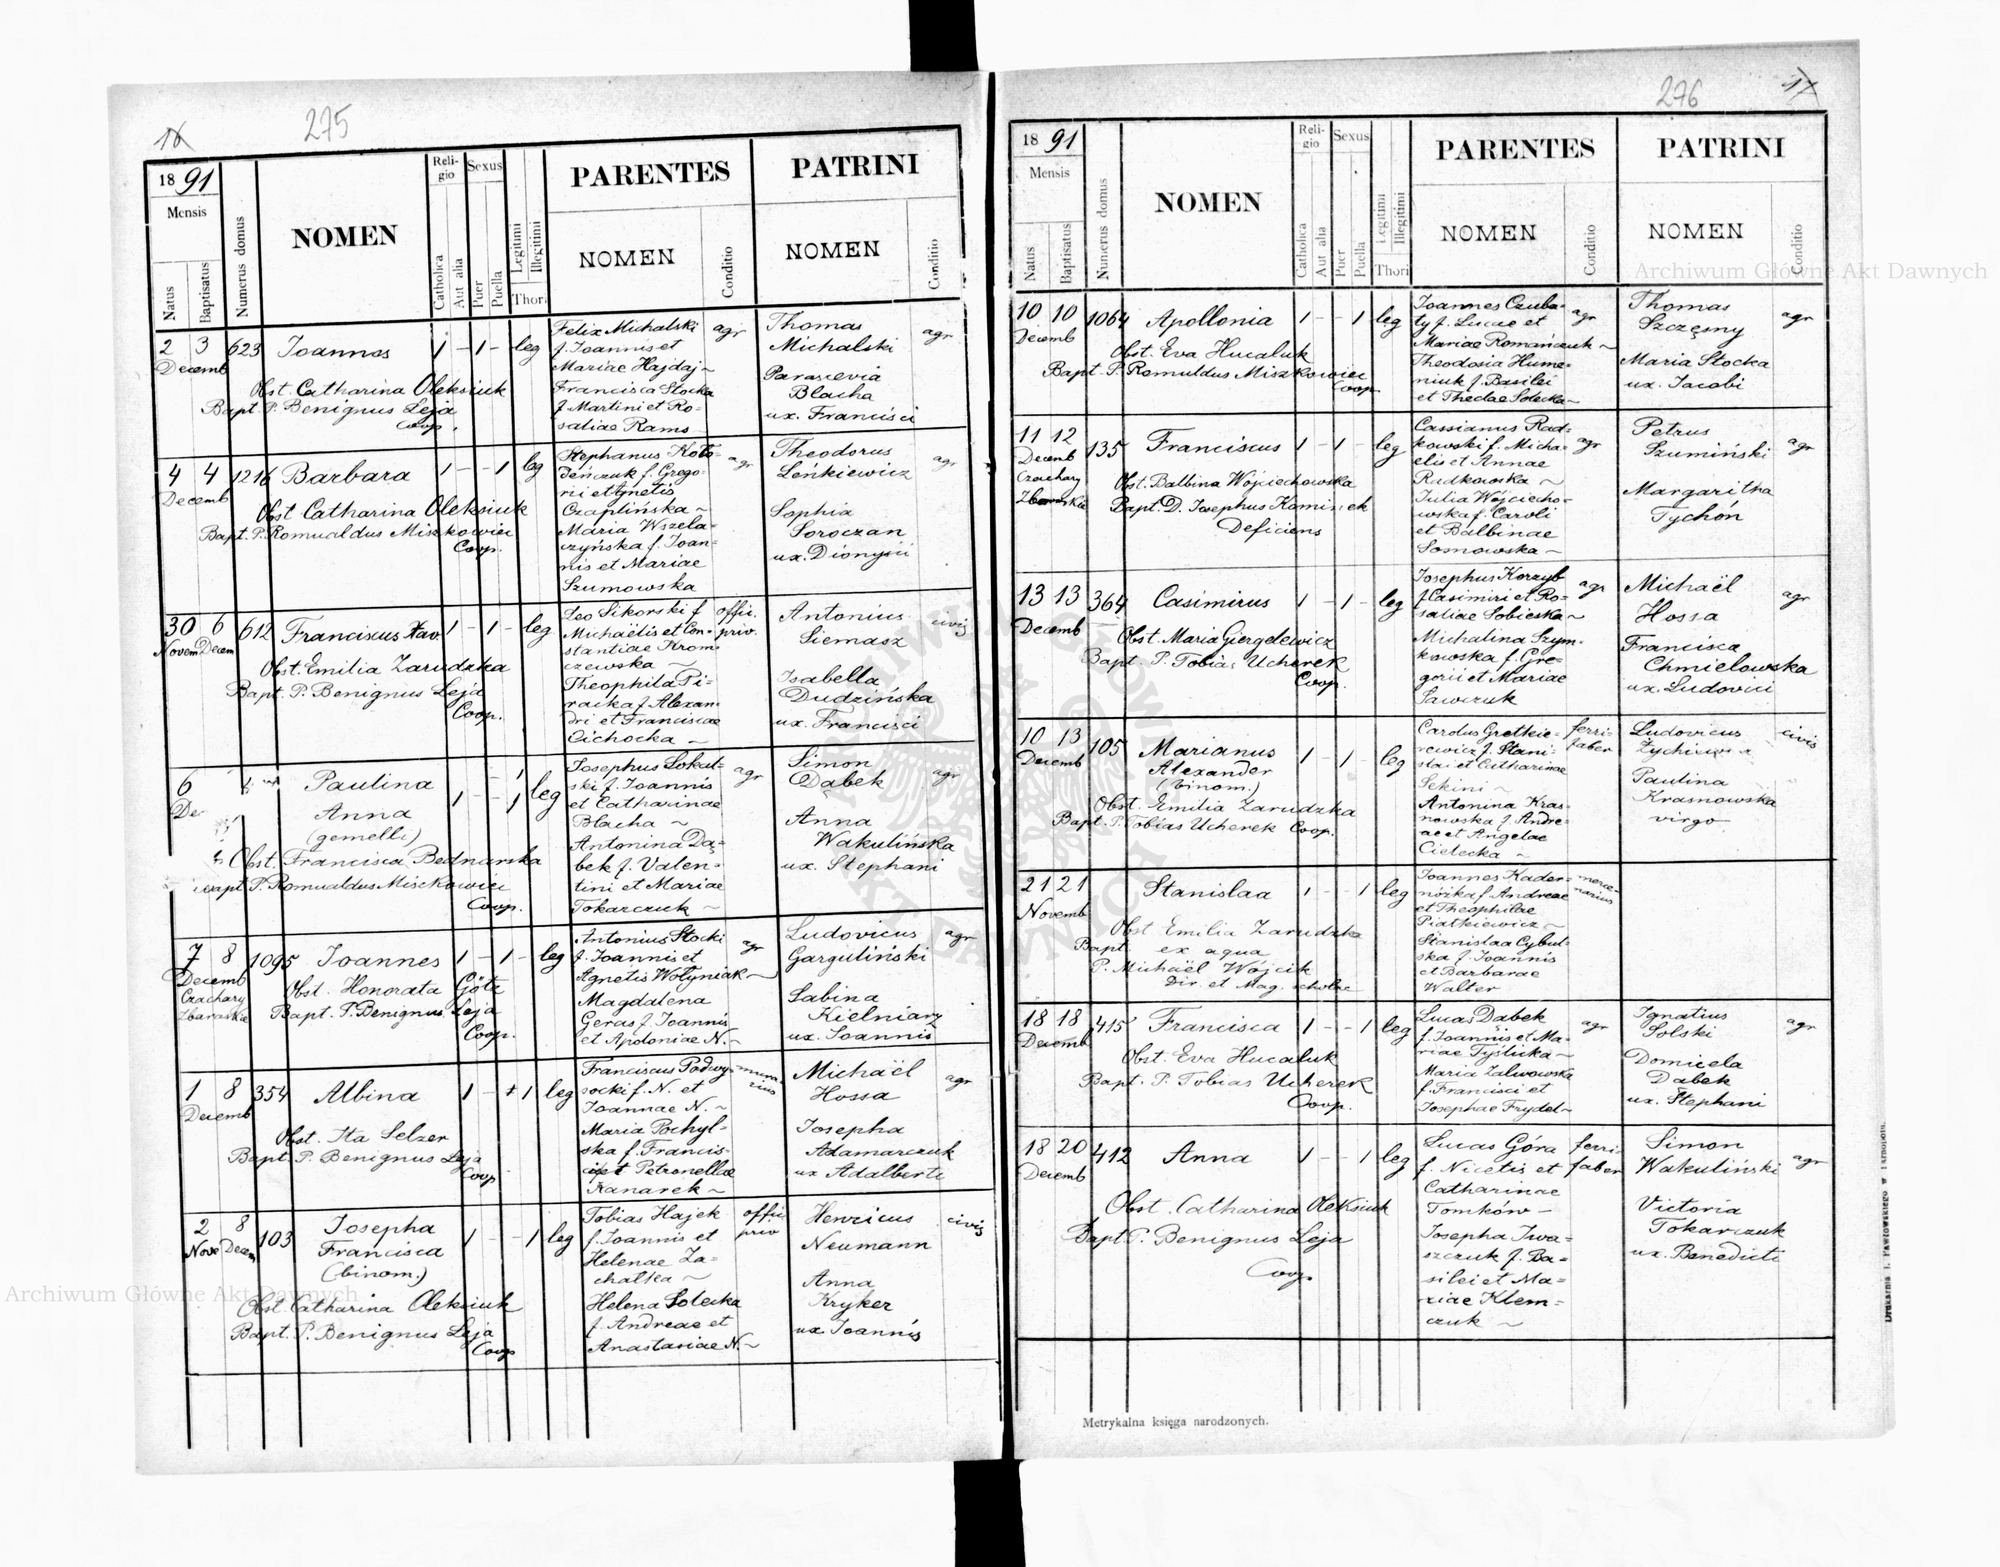 275
18 91
Mensis
Natus
Baptisatus
Numerus domus
NOMEN
Reli-
gio
Catholica
Aut alia
Sexus
Puer
Puella
Legitimi
Illegitimi
Thori
PARENTES
NOMEN
Conditio
PATRINI
NOMEN
Conditio
2 3 623 Joannes 1 - 1 - leg
Decemb
Obst. Catharina Oleksiuk
Bapt. P. Benignus Leja
Coop.
Felix Michalski agr
f. Joannis et
Mariae Hajdaj ~
Francisca Stocka
f. Martini et Ro-
saliae Rams
Thomas agr
Michalski
Parascevia
Blacha
ux. Francisci
4 4 1216 Barbara 1 - - 1 leg
Decemb
Obst Catharina Oleksiuk
Bapt. P. Romualdus Miszkowici
Coop.
Stephanus Koło- agr
deńczuk f. Grego-
rii et Agnetis
Czaplińska ~
Maria Wszela-
czyńska f. Joan-
nis et Mariae
Szumowska
Theodorus agr
Leńkiewicz
Sophia
Soroczan
ux. Dionysii
30 6 612 Franciscus Xav 1 - 1 - leg
Novem Decem
Obst. Emilia Zarudzka
Bapt. P. Benignus Leja
Coop.
Leo Sikorski f. offic.
Michaëlis et Con- priv.
stantiae Krom-
czewska ~
Theophila Pi-
racka f. Alexan-
dri et Franciscae
Cichocka ~
Antonius civis
Siemasz
Isabella
Dudzińska
ux. Francisci
6 Paulina 1
Anna 1 - 1 leg
(gemelli)
Obst. Francisca Bednarska
Bapt P. Romualdus Miszkowici
Coop.
Josephus Sokal- agr
ski f. Joannis
et Catharinae
Blacha ~
Antonina Da-
bek f. Valen-
tini et Mariae
Tokarczuk ~
Simon
Dabek agr
Anna
Wakulińska
ux. Stephani
7 8 1095 Joannes 1 - 1 - leg
Decemb
Czachary
Zbaraskie
Obst. Honorata Götz
Bapt. P. Benignus Leja
Coop.
Antonius Stocki agr
f. Joannis et
Agnetis Wołyniak ~
Magdalena
Geras f. Joannis
et Apoloniae N. ~
Ludovicus agr
Garguliński
Sabina
Kielniarz
ux. Joannis
1 8 354 Albina 1 - + 1 leg
Decemb
Obst. Ita Selzer
Bapt. P. Benignus Leja
Coop
Franciscus Podwy- mura-
socki f. N. et rius
Joannae N. ~
Maria Pochyl-
ska f. Francis-
ci et Petronellae
Kanarek ~
Michaël agr
Hossa
Josepha
Adamarczuk
ux Adalberti
2 8 103 Josepha 1 - - 1 leg
Nove Decem Francisca
(binom.)
Obst. Catharina Oleksiuk
Bapt. P. Benignus Leja
Coop
Tobias Hajek offic
f. Joannis et priv
Helenae Za-
chalka ~
Helena Solecka
f. Andreae et
Anastasiae N. ~
Henricus civis
Neumann
Anna
Kryker
ux. Joannis
276
18 91
Mensis
Natus
Baptisatus
Numerus domus
NOMEN
Reli-
gio
Catholica
Aut alia
Sexus
Puer
Puella
Legitimi
Illegitimi
Thori
PARENTES
NOMEN
Conditio
PATRINI
NOMEN
Conditio
10 10 1064 Apollonia 1 - - 1 leg
Decemb
Obst. Eva Hucaluk
Bapt. P. Romuldus Miszkowici
Coop.
Joannes Czuba- agr
ty f. Lucae et
Mariae Romańczuk ~
Theodosia Hume-
niuk f. Basilei
et Theclae Solecka ~
Thomas
Szczęsny agr
Maria Stocka
ux. Jacobi
11 12 135 Franciscus 1 - 1 - leg
Decemb
Czachary
Zbaraskie
Obst. Balbina Wójciechowska
Bapt. D. Josephus Kaminek
Deficiens
Cassianus Rad-
kowski f. Micha- agr
elis et Annae
Rudkowska ~
Julia Wójciecho-
wska f. Caroli
et Balbinae
Sosnowska ~
Petrus
Szumiński agr
Margaritha
Tychón
13 13 364 Casimirus 1 - 1 - leg
Decemb
Obst. Maria Giergelewicz
Bapt. P. Tobias Ucherek
Coop.
Josephus Korzyb agr
f. Casimiri et Ro-
saliae Sobieska ~
Michalina Szym-
kowska f. Gre-
gorii et Mariae
Sawczuk
Michaël agr
Hossa
Francisca
Chmielowska
ux. Ludovici
10 13 105 Marianus 1 - 1 - leg
Decemb Alexander
(binom.)
Obst. Emilia Zarudzka
Bapt. P. Tobias Ucherek Coop.
Carolus Gretkie- ferri-
rewicz f. Stani- faber
slai et Catharinae
Sekini ~
Antonina Kras-
nowska f. Andre-
ae et Angelae
Cielecka ~
Ludovicus civis
Paulina
Krasnowska
virgo
21 21 Stanislaa 1 - - 1 leg
Novemb
Obst Emilia Zarudzka
Bapt. ex aqua
P. Michaël Wójcik
Dir. et Mag. scholae
Joannes Kader- merce-
nóżka f. Andreae narius
et Theophilae
Piatkiewicz ~
Stanislaa Cybul-
ska f. Joannis
et Barbarae
Walter
18 18 415 Francisca 1 - - 1 leg
Decemb
Obst. Eva Hucaluk
Bapt. P. Tobias Ucherek
Coop.
Lucas Dabek agr
f. Joannis et Ma-
riae Tyślicka ~
Maria Zalwowska
f. Francisci et
Josephae Frydel ~
Ignatius agr
Solski
Domicela
Dabek
ux. Stephani
18 20 412 Anna 1 - - 1 leg
Decemb
Obst. Catharina Oleksiuk
Bapt. P. Benignus Leja
Coop
Lucas Góra ferri-
f. Nicetis et faber
Catharinae
Tomków ~
Josepha Iwa-
szczuk f. Ba-
silei et Ma-
riae Klem-
czuk ~
Simon
Wakuliński agr
Victoria
Tokarczuk
ux. Benedicti
Metrykalna księga narodzonych.
Drukarnia J. Pawłowskiego w Tarnopolu.
Archiwum Główne Akt Dawnych
Archiwum Główne Akt Dawnych